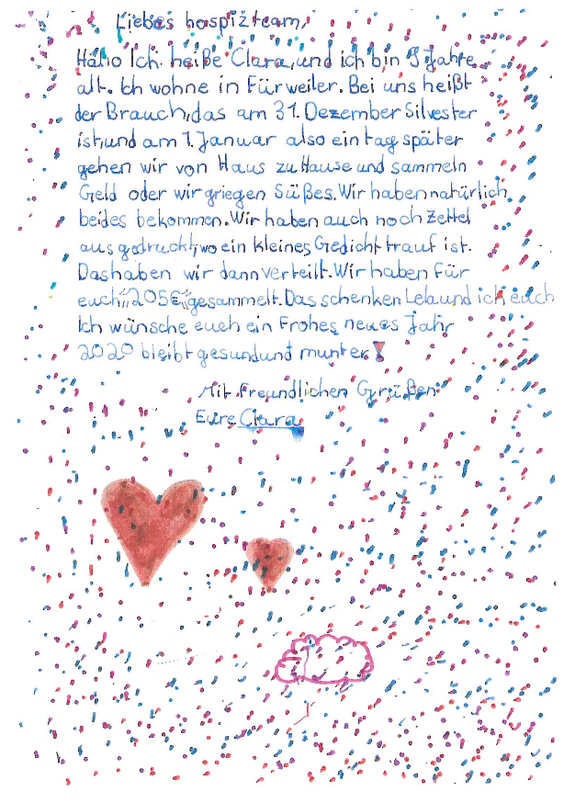 Liebes hospizteam,
Hallo Ich heiße Clara, und ich bin 9 Jahre
alt. Ich wohne in Fürweiler. Bei uns heißt
der Brauch, das am 31. Dezember Silvester
ist, und am 1. Januar also ein tag später
gehen wir von Haus zu Hause und sammeln
Geld oder wir griegen Süßes. Wir haben natürlich
beides bekommen. Wir haben auch noch Zettel
aus gedruckt, wo ein kleines Gedicht trauf ist.
Das haben wir dann verteilt. Wir haben für
euch "205€" gesammelt. Das schenken Lela und ich euch
Ich wünsche euch ein Frohes neues Jahr
2020 bleibt gesund und munter!
Mit Freundlichen Grüßen
Eure Clara